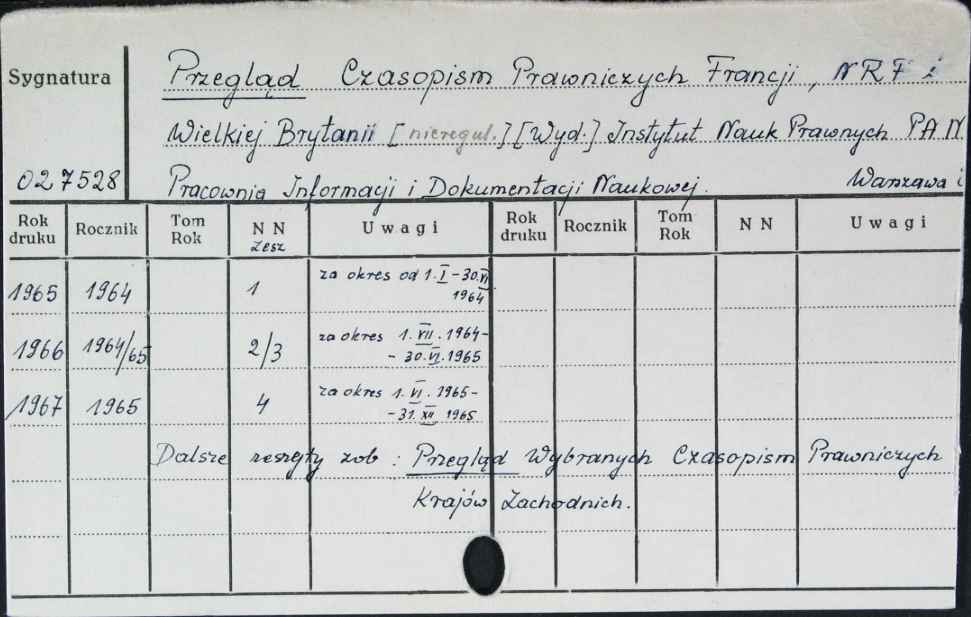 Sygnatura
Przegląd Czasopism Prawniczych Francji, NRF i
Wielkiej Brytanii [nieregul.] [Wyd.] Instytut Nauk Prawnych PAN
027528 Pracownia Informacji i Dokumentacji Naukowej. Warszawa i
Rok druku Rocznik Tom Rok NN zesz Uwagi Rok druku Rocznik Tom Rok NN Uwagi
1965 1964 1 za okres od 1.I-30.VI
1964
1966 1964/65 2/3 za okres 1.VII.1964-
-30.VI.1965
1967 1965 4 za okres 1.VI.1965-
-31.XII 1965
Dalsze zeszyty zob: Przegląd Wybranych Czasopism Prawniczych
Krajów Zachodnich.